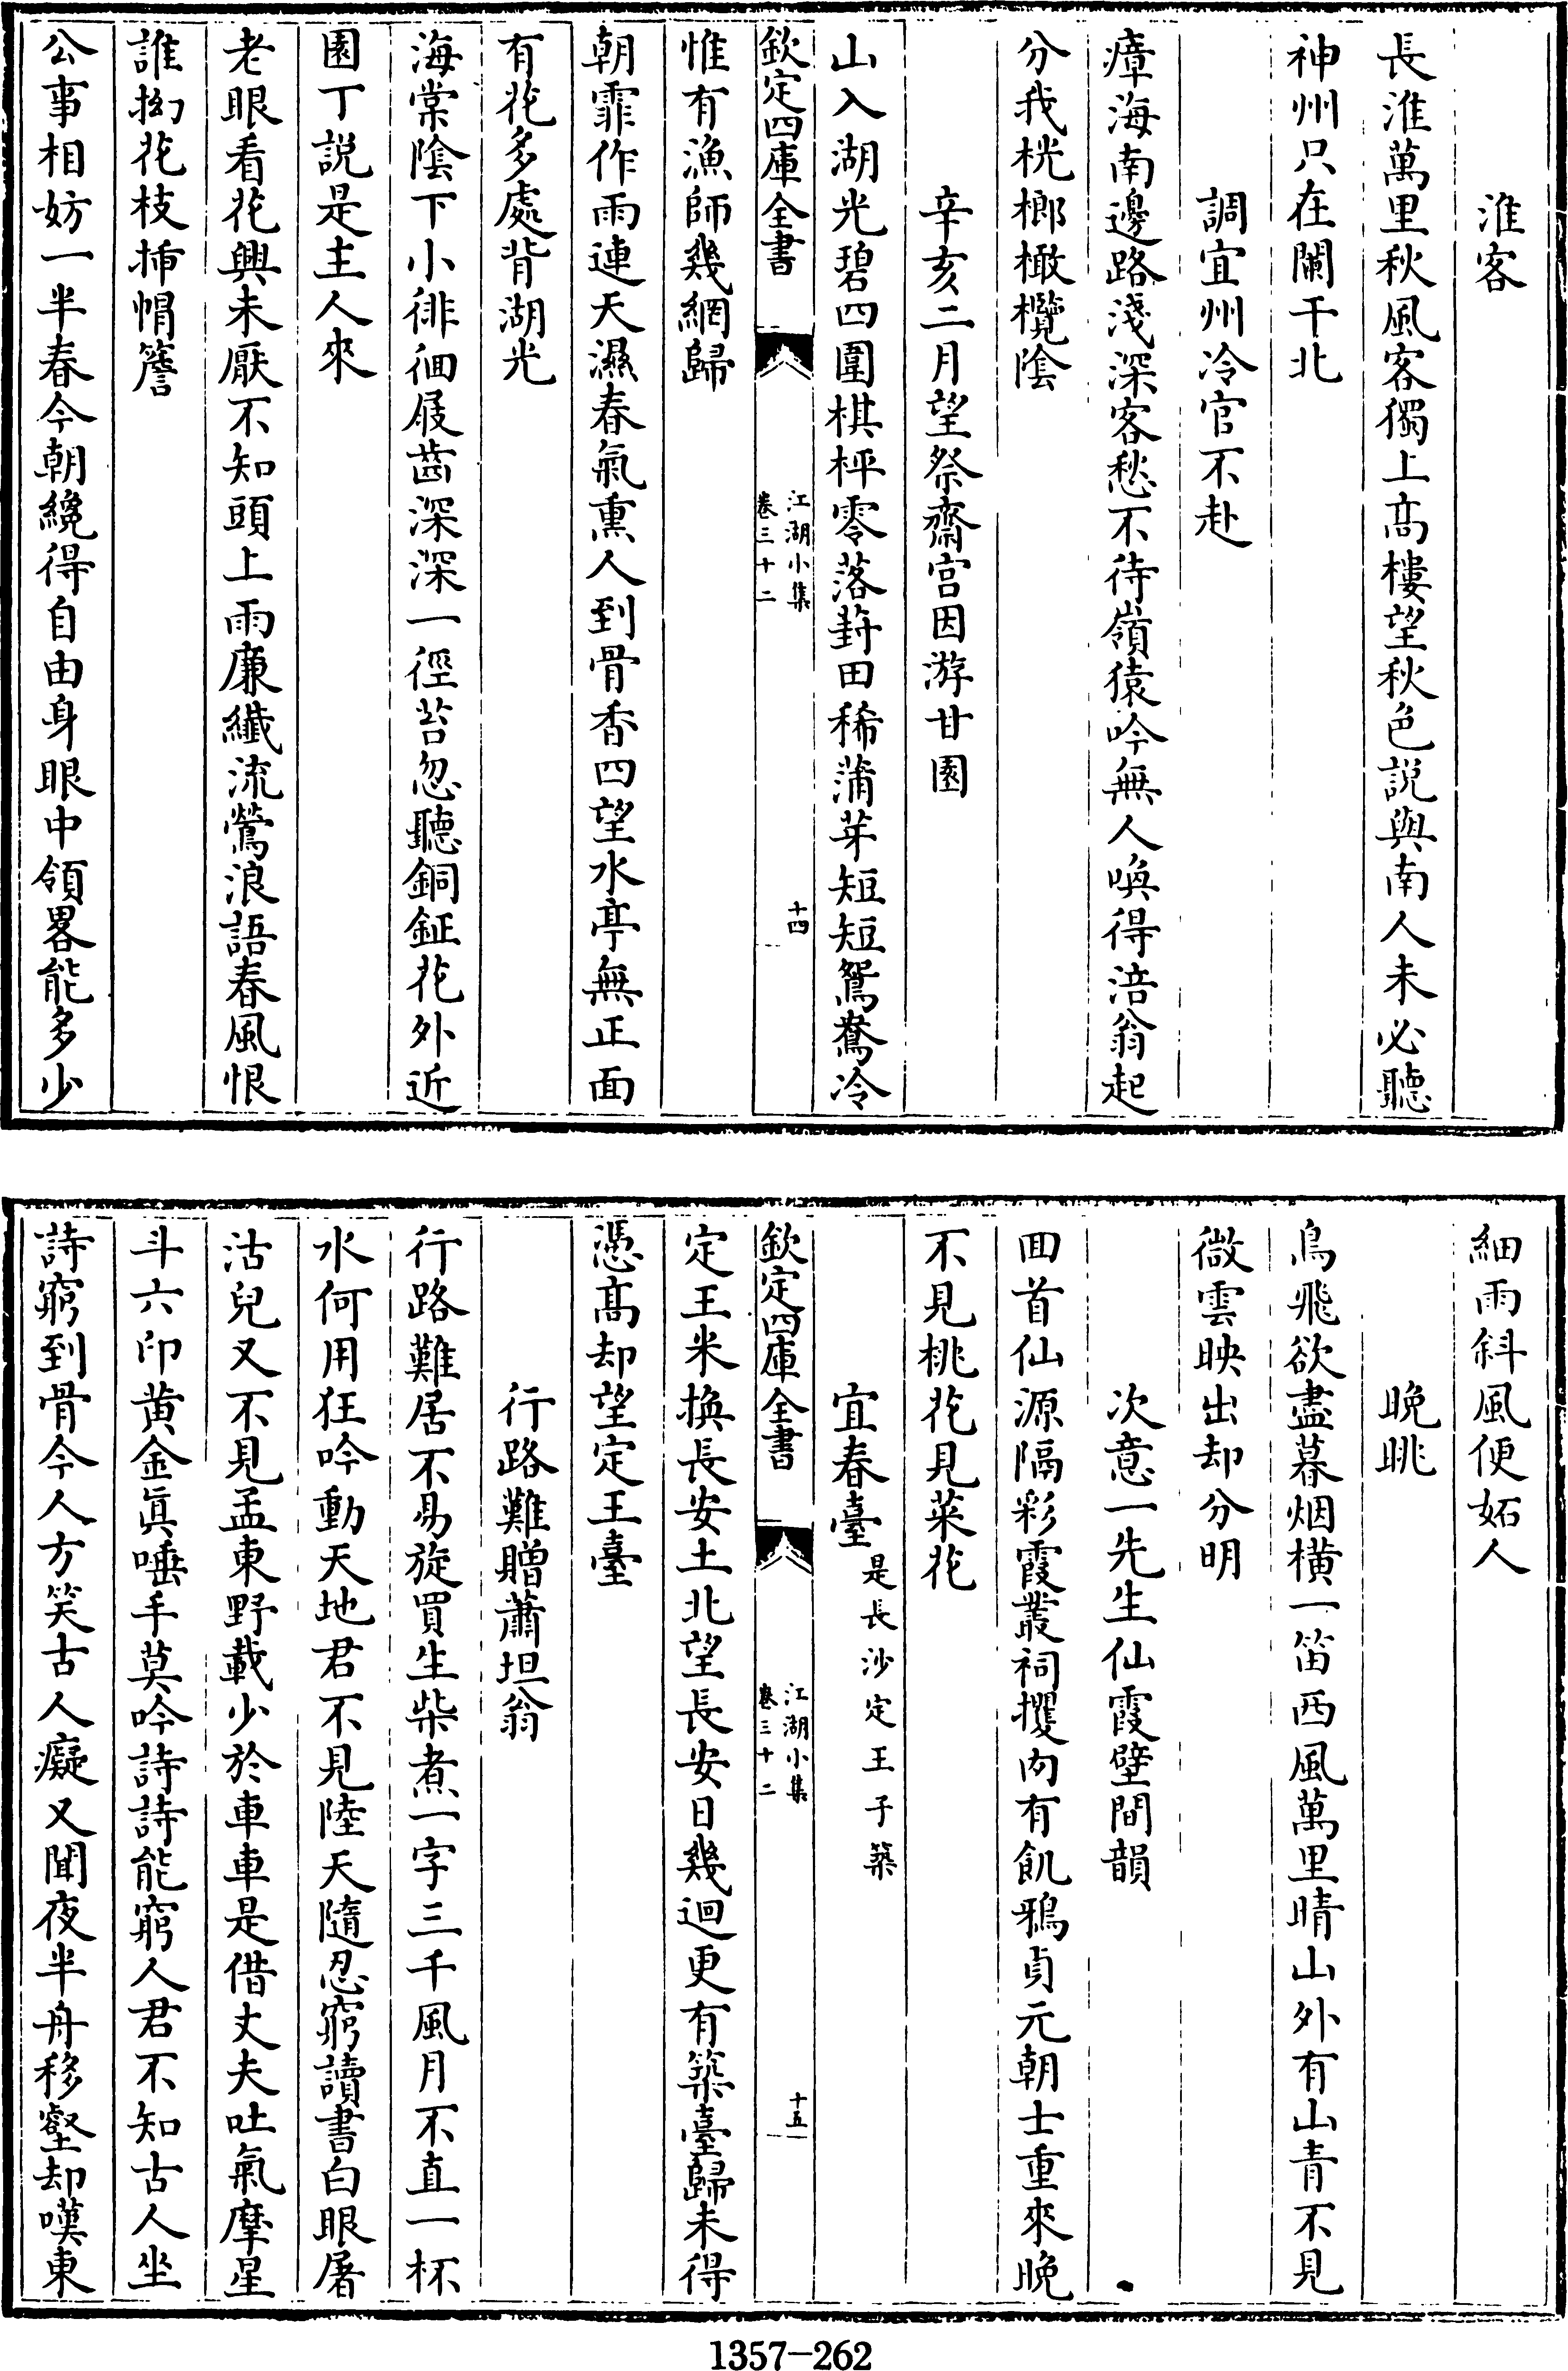 淮客
長淮萬里秋風客獨上髙樓望秋色説與南人未必聽
神州只在闌干北
調宜州冷官不赴
瘴海南邊路淺深客愁不待嶺猿吟無人喚得涪翁起
分我桄榔橄欖隂
辛亥二月望祭齋宫因游甘園
山入湖光碧四圍棋枰零落葑田稀蒲芽短短鴛鴦冷
欽定四庫全書
江湖小集
卷三十二
十四
惟有漁師幾網歸
朝霏作雨連天濕春氣熏人到骨香四望水亭無正面
有花多處背湖光
海棠隂下小徘徊屐齒深深一徑苔忽聽銅鉦花外近
園丁説是主人來
老眼看花興未厭不知頭上雨亷纖流鶯浪語春風恨
誰拗花枝揷帽簷
公事相妨一半春今朝纔得自由身眼中領畧能多少
細雨斜風便妬人
晩眺
鳥飛欲盡暮烟横一笛西風萬里晴山外有山青不見
微雲映出却分明
次意一先生仙霞壁間韻
囬首仙源隔彩霞叢祠攫肉有飢鴉貞元朝士重來晩
不見桃花見菜花
宜春臺是長沙定王子築
欽定四庫全書
江湖小集
卷三十二
十五
定王米換長安土北望長安日幾迴更有築臺歸未得
憑髙却望定王臺
行路難贈蕭坦翁
行路難居不易旋買生柴煮一字三千風月不直一杯
水何用狂吟動天地君不見陸天隨忍窮讀書白眼屠
沽兒又不見孟東野載少於車車是借丈夫吐氣摩星
斗六印黄金真唾手莫吟詩詩能窮人君不知古人坐
詩窮到骨今人方笑古人癡又聞夜半舟移壑却嘆東
1357-262